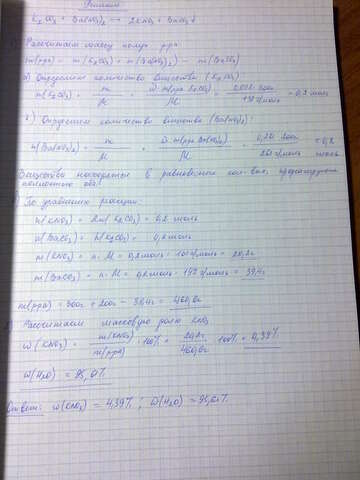 Решение
K₂CO₃ + Ba(NO₃)₂ → 2KNO₃ + BaCO₃↓
Рассчитаем массу получ. р-ра
m(р-ра) = m(K₂CO₃) + m(Ba(NO₃)₂) - m(BaCO₃)
а) Определяем количество вещества (K₂CO₃)
n(K₂CO₃) = m/M = ω·m(р-ра K₂CO₃)/M = 300г/138 г/моль = 0,2 моль
Определяем количество вещества (Ba(NO₃)₂):
n(Ba(NO₃)₂) = m/M = ω·m(р-ра Ba(NO₃)₂)/M = 200г/261 г/моль = 0,2 моль
Вещества находятся в равновесном кол-вах,
полностью оба.
По уравнению реакции:
n(KNO₃) = 2n(K₂CO₃) = 0,2 моль
n(BaCO₃) = n(K₂CO₃) = 0,2 моль
m(KNO₃) = n·M = 0,2 моль·101 г/моль = 20,2г
m(BaCO₃) = n·M = 0,2 моль·197 г/моль = 39,4г
m(р-ра) = 300г + 200г - 39,4г = 460,6г
Рассчитаем массовую долю KNO₃
ω(KNO₃) = m(KNO₃)/m(р-ра)·100% = 20,2г/460,6г·100% = 4,39%
ω(H₂O) = 95,61%
Ответ: ω(KNO₃) = 4,39%; ω(H₂O) = 95,61%